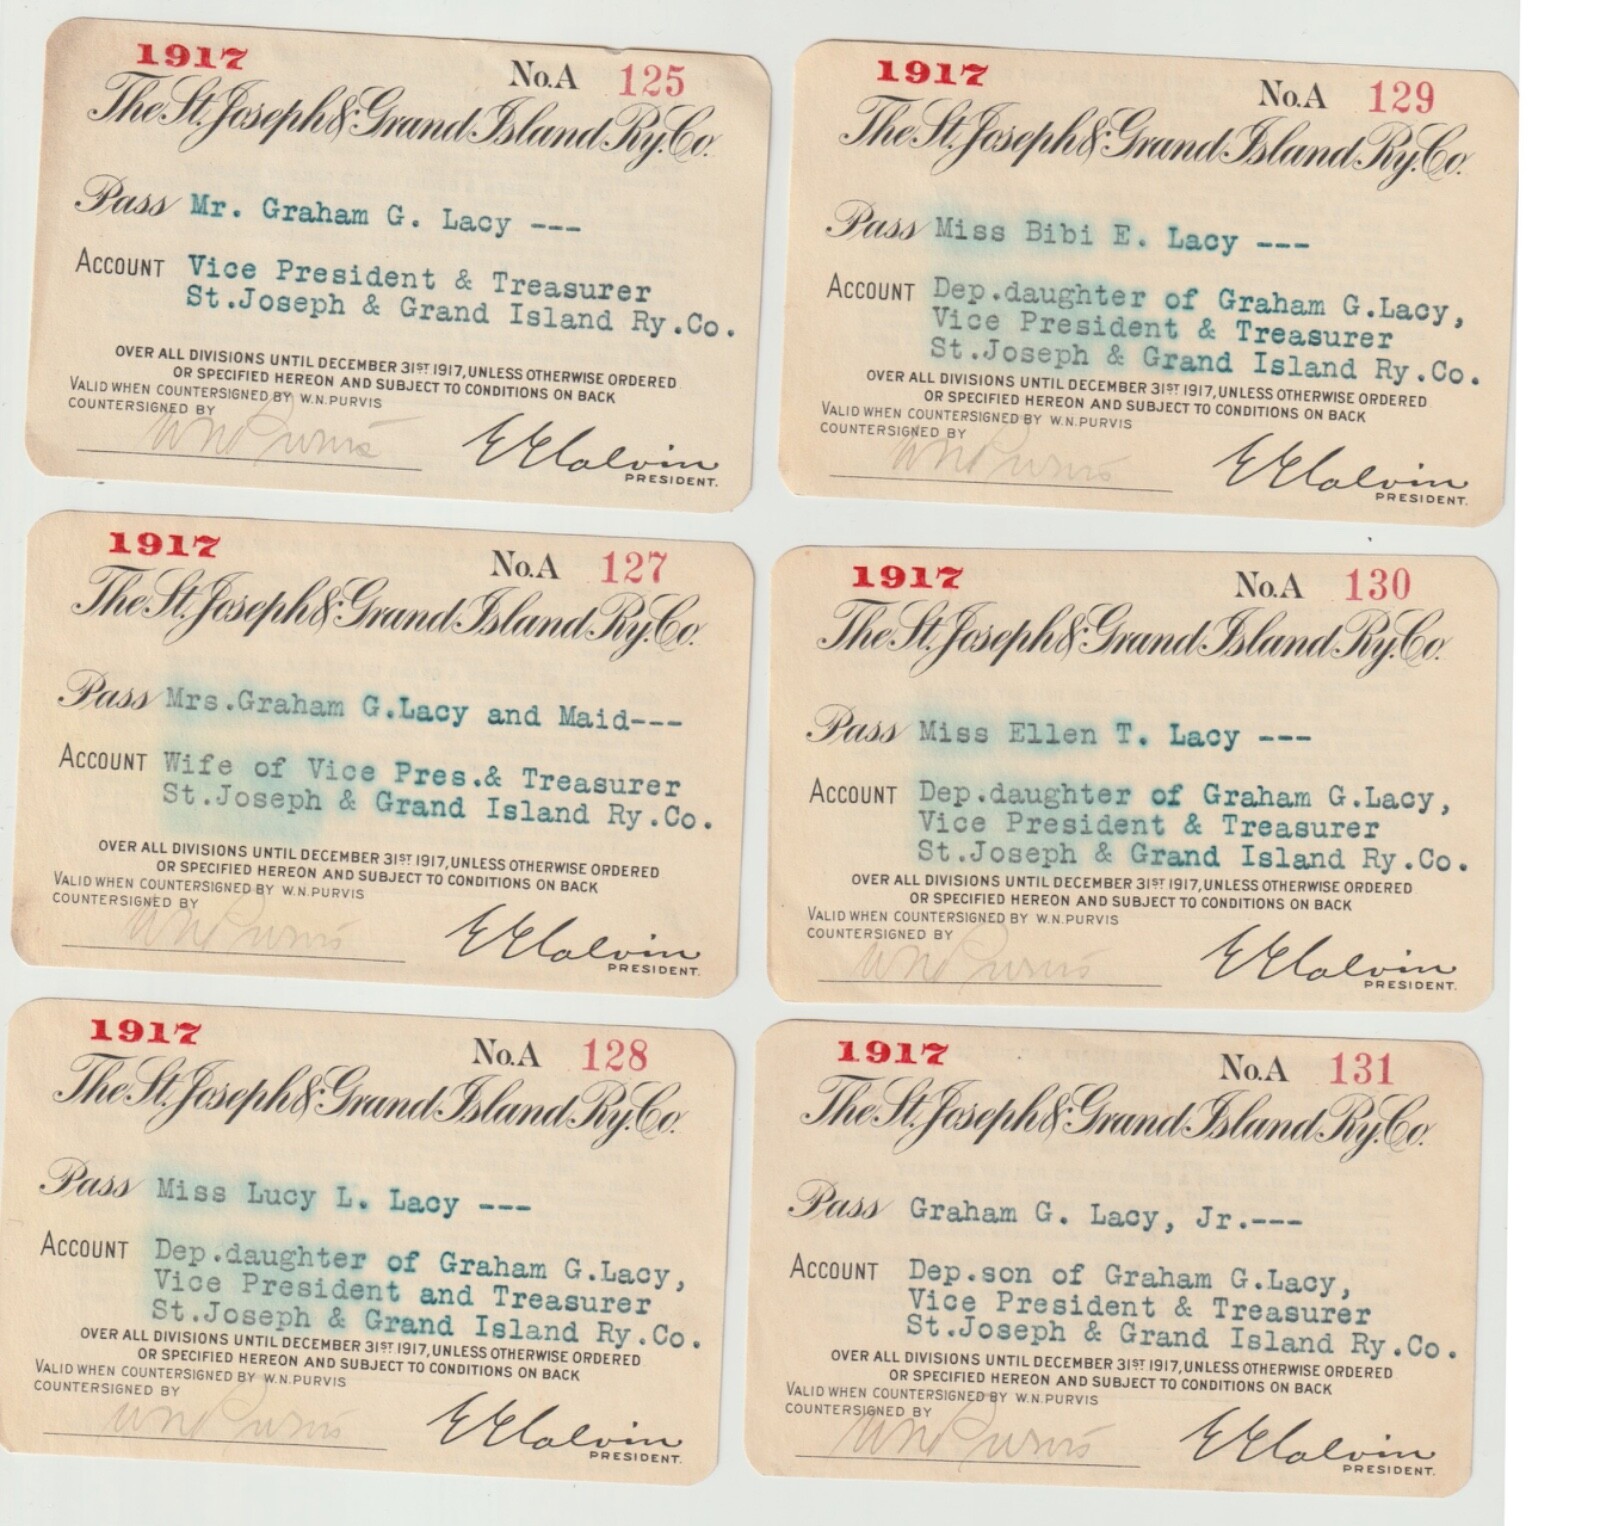 1917
No.A 125
The St. Joseph & Grand Island Ry. Co.
Pass Mr. Graham G. Lacy ---
ACCOUNT Vice President & Treasurer
St.Joseph & Grand Island Ry.Co.
OVER ALL DIVISIONS UNTIL DECEMBER 31ST 1917, UNLESS OTHERWISE ORDERED
OR SPECIFIED HEREON AND SUBJECT TO CONDITIONS ON BACK
VALID WHEN COUNTERSIGNED BY W.N.PURVIS
COUNTERSIGNED BY
WN Purvis
E E Calvin
PRESIDENT.
1917
No.A 127
The St. Joseph & Grand Island Ry. Co.
Pass Mrs.Graham G.Lacy and Maid---
ACCOUNT Wife of Vice Pres.& Treasurer
St.Joseph & Grand Island Ry.Co.
OVER ALL DIVISIONS UNTIL DECEMBER 31ST 1917, UNLESS OTHERWISE ORDERED
OR SPECIFIED HEREON AND SUBJECT TO CONDITIONS ON BACK
VALID WHEN COUNTERSIGNED BY W.N.PURVIS
COUNTERSIGNED BY
WN Purvis
E E Calvin
PRESIDENT.
1917
No.A 128
The St. Joseph & Grand Island Ry. Co.
Pass Miss Lucy L. Lacy ---
ACCOUNT Dep.daughter of Graham G.Lacy,
Vice President and Treasurer
St.Joseph & Grand Island Ry.Co.
OVER ALL DIVISIONS UNTIL DECEMBER 31ST 1917, UNLESS OTHERWISE ORDERED
OR SPECIFIED HEREON AND SUBJECT TO CONDITIONS ON BACK
VALID WHEN COUNTERSIGNED BY W.N.PURVIS
COUNTERSIGNED BY
WN Purvis
E E Calvin
PRESIDENT.
1917
No.A 129
The St. Joseph & Grand Island Ry. Co.
Pass Miss Bibi E. Lacy ---
ACCOUNT Dep.daughter of Graham G.Lacy,
Vice President & Treasurer
St.Joseph & Grand Island Ry.Co.
OVER ALL DIVISIONS UNTIL DECEMBER 31ST 1917, UNLESS OTHERWISE ORDERED
OR SPECIFIED HEREON AND SUBJECT TO CONDITIONS ON BACK
VALID WHEN COUNTERSIGNED BY W.N.PURVIS
COUNTERSIGNED BY
WN Purvis
E E Calvin
PRESIDENT.
1917
No.A 130
The St. Joseph & Grand Island Ry. Co.
Pass Miss Ellen T. Lacy ---
ACCOUNT Dep.daughter of Graham G.Lacy,
Vice President & Treasurer
St.Joseph & Grand Island Ry.Co.
OVER ALL DIVISIONS UNTIL DECEMBER 31ST 1917, UNLESS OTHERWISE ORDERED
OR SPECIFIED HEREON AND SUBJECT TO CONDITIONS ON BACK
VALID WHEN COUNTERSIGNED BY W.N.PURVIS
COUNTERSIGNED BY
WN Purvis
E E Calvin
PRESIDENT.
1917
No.A 131
The St. Joseph & Grand Island Ry. Co.
Pass Graham G. Lacy, Jr.---
ACCOUNT Dep.son of Graham G.Lacy,
Vice President & Treasurer
St.Joseph & Grand Island Ry.Co.
OVER ALL DIVISIONS UNTIL DECEMBER 31ST 1917, UNLESS OTHERWISE ORDERED
OR SPECIFIED HEREON AND SUBJECT TO CONDITIONS ON BACK
VALID WHEN COUNTERSIGNED BY W.N.PURVIS
COUNTERSIGNED BY
WN Purvis
E E Calvin
PRESIDENT.